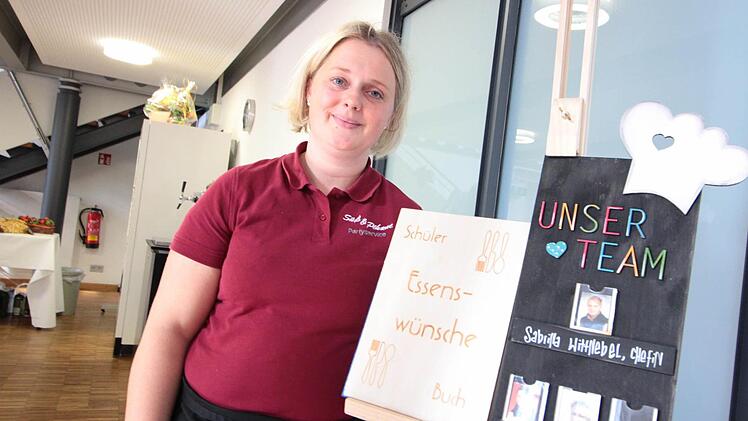 Partyservice
Schüler
Essens-
wünsche
Buch
UNSER
TEAM
Sabrina Wittlebel, Chefin